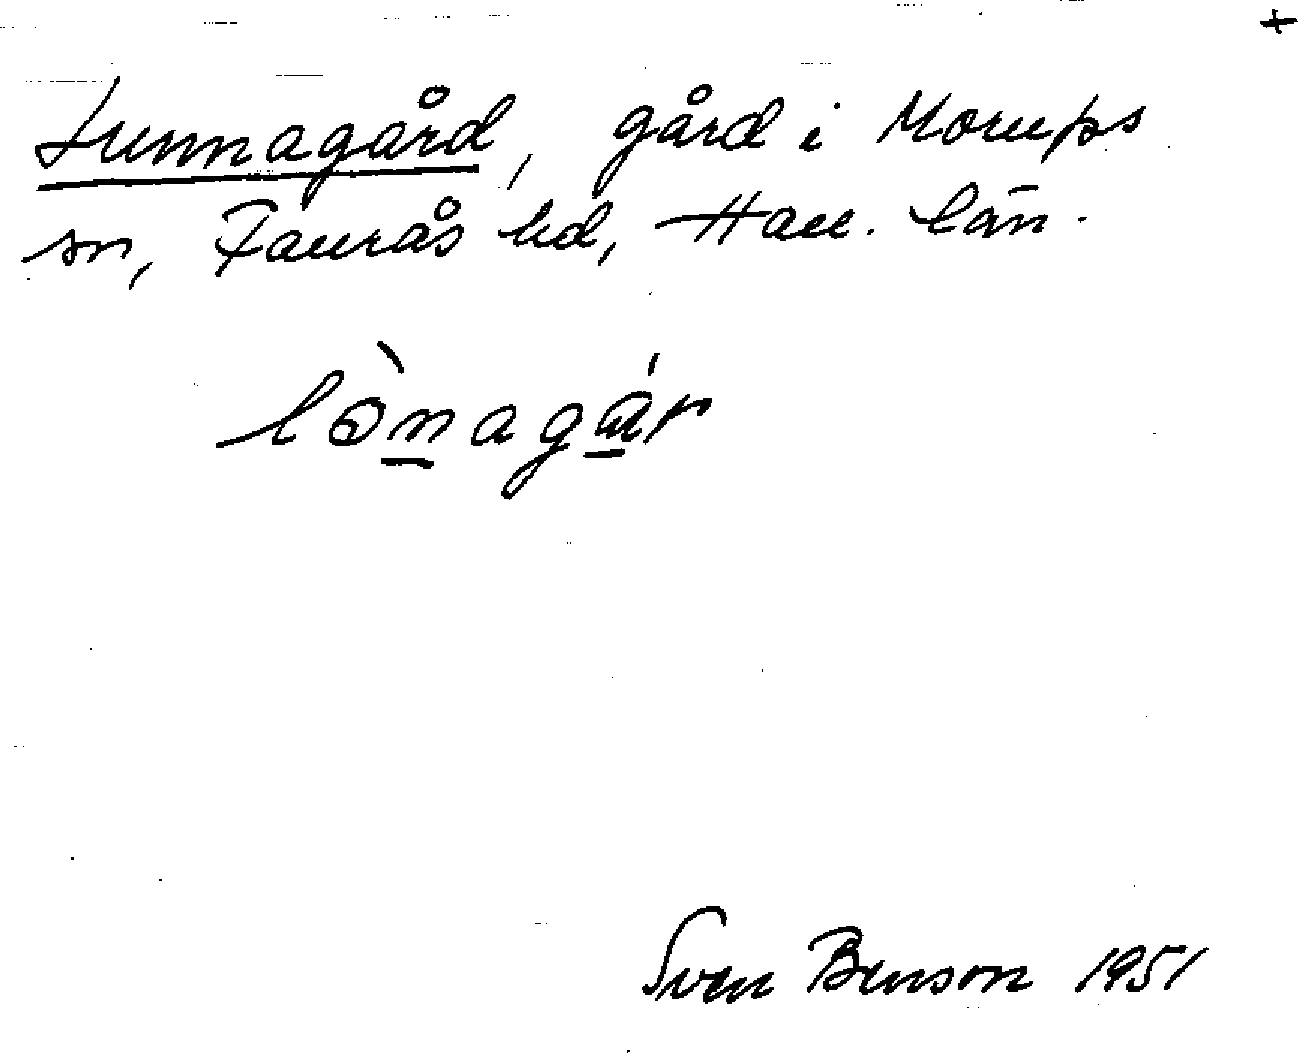 +
Lunnagård, gård i Morups
sn, Faurås hd, Hall. län.
Sven Benson 1951